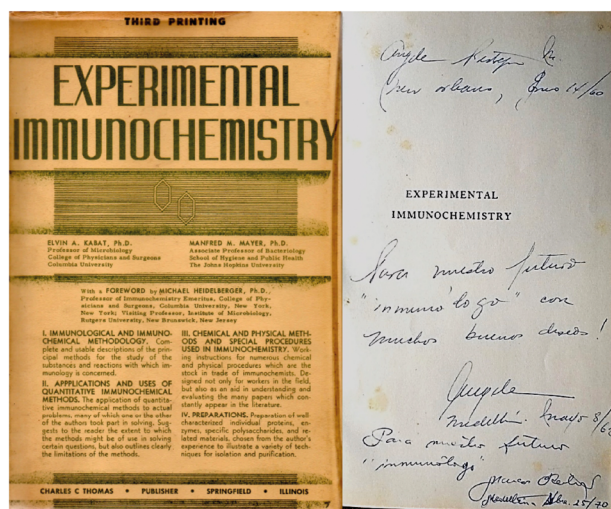 THIRD PRINTING
EXPERIMENTAL
IMMUNOCHEMISTRY
ELVIN A. KABAT, Ph.D.
Professor of Microbiology
College of Physicians and Surgeons
Columbia University
MANFRED M. MAYER, Ph.D.
Associate Professor of Bacteriology
School of Hygiene and Public Health
The Johns Hopkins University
With a FOREWORD by MICHAEL HEIDELBERGER, Ph.D.,
Professor of Immunochemistry Emeritus, College of Phy-
sicians and Surgeons, Columbia University, New York,
New York; Visiting Professor, Institute of Microbiology,
Rutgers University, New Brunswick, New Jersey
I. IMMUNOLOGICAL AND IMMUNO-
CHEMICAL METHODOLOGY. Com-
plete and usable descriptions of the prin-
cipal methods for the study of the
substances and reactions with which im-
munology is concerned.
II. APPLICATIONS AND USES OF
QUANTITATIVE IMMUNOCHEMICAL
METHODS. The application of quantita-
tive immunochemical methods to actual
problems, many of which one or the other
of the authors took part in solving. Sug-
gests to the reader the extent to which
the methods might be of use in solving
certain questions, but also outlines clearly
the limitations of the methods.
III. CHEMICAL AND PHYSICAL METH-
ODS AND SPECIAL PROCEDURES
USED IN IMMUNOCHEMISTRY. Work-
ing instructions for numerous chemical
and physical procedures which are the
stock in trade of immunochemists. De-
signed not only for workers in the field,
but also as an aid in understanding and
evaluating the many papers which con-
stantly appear in the literature.
IV. PREPARATIONS. Preparation of well-
characterized individual proteins, en-
zymes, specific polysaccharides, and re-
lated materials, chosen from the author's
experience to illustrate a variety of tech-
niques for isolation and purification.
CHARLES C THOMAS • PUBLISHER • SPRINGFIELD • ILLINOIS
Angela Restrepo M.
(New Orleans, Enero 14/60
EXPERIMENTAL
IMMUNOCHEMISTRY
Para nuestro futuro
"inmunólogo" con
muchos buenos deseos!
Angela
Medellín. Mayo
Para nuestro futuro
"inmunólogo"
Marcos
Medellín 25/70